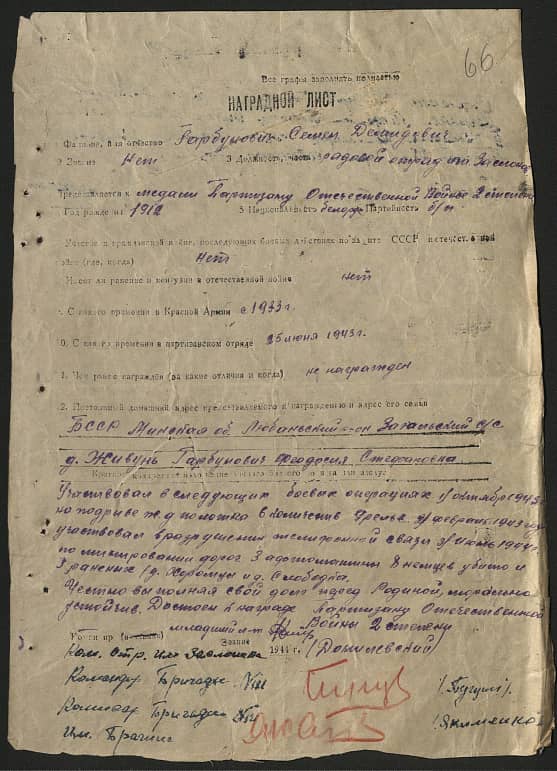 66
Все графы заполнять полностью
НАГРАДНОЙ ЛИСТ
Фамилия, имя отчество Гарбунович Семен Демидович
2 Звание Нет 3 Должность, часть рядовой отряд им Заслонова
Представляется к медали Партизану Отечественной Войны 2 степени
Год рождения 1912 5 Национальность белорус Партийность б/п
Участие в гражданской войне, последующих боевых действиях по защите СССР и отечественной
войне (где, когда) нет
Имеет ли ранение и контузии в отечественной войне нет
С какого времени в Красной Армии с 1933 г.
10. С какого времени в партизанском отряде 25 июня 1943 г.
1. Чем ранее награжден (за какие отличия и когда) не награжден
2. Постоянный домашний адрес представляемого к награждению и адрес его семьи
БССР Минская об. Любаньский р-он Загальский с/с
д. Живунь Гарбунович Феодосия Стефановна
Участвовал в следующих боевых операциях: 1/ октябрь 1943 г.
на подрыве ж.д полотна в количестве рельс. 2/ февраль 1943 г.
участвовал в разрушении телефонной связи 3/ июнь 1944 г.
по минированию дорог 3 автомашины 8 немцев убито и
ранених д. Хоромцы и д. Слобода.
Честно выполняя свой долг перед Родиной, морально
устойчив. Достоин к награде Партизану Отечественной
Войны 2 степени
младший л-т
Звание
1944 г. (Данилевский)
Ком. Отр. им Заслонова
Командир Бригады №
Комиссар Бригады №
/Якименко